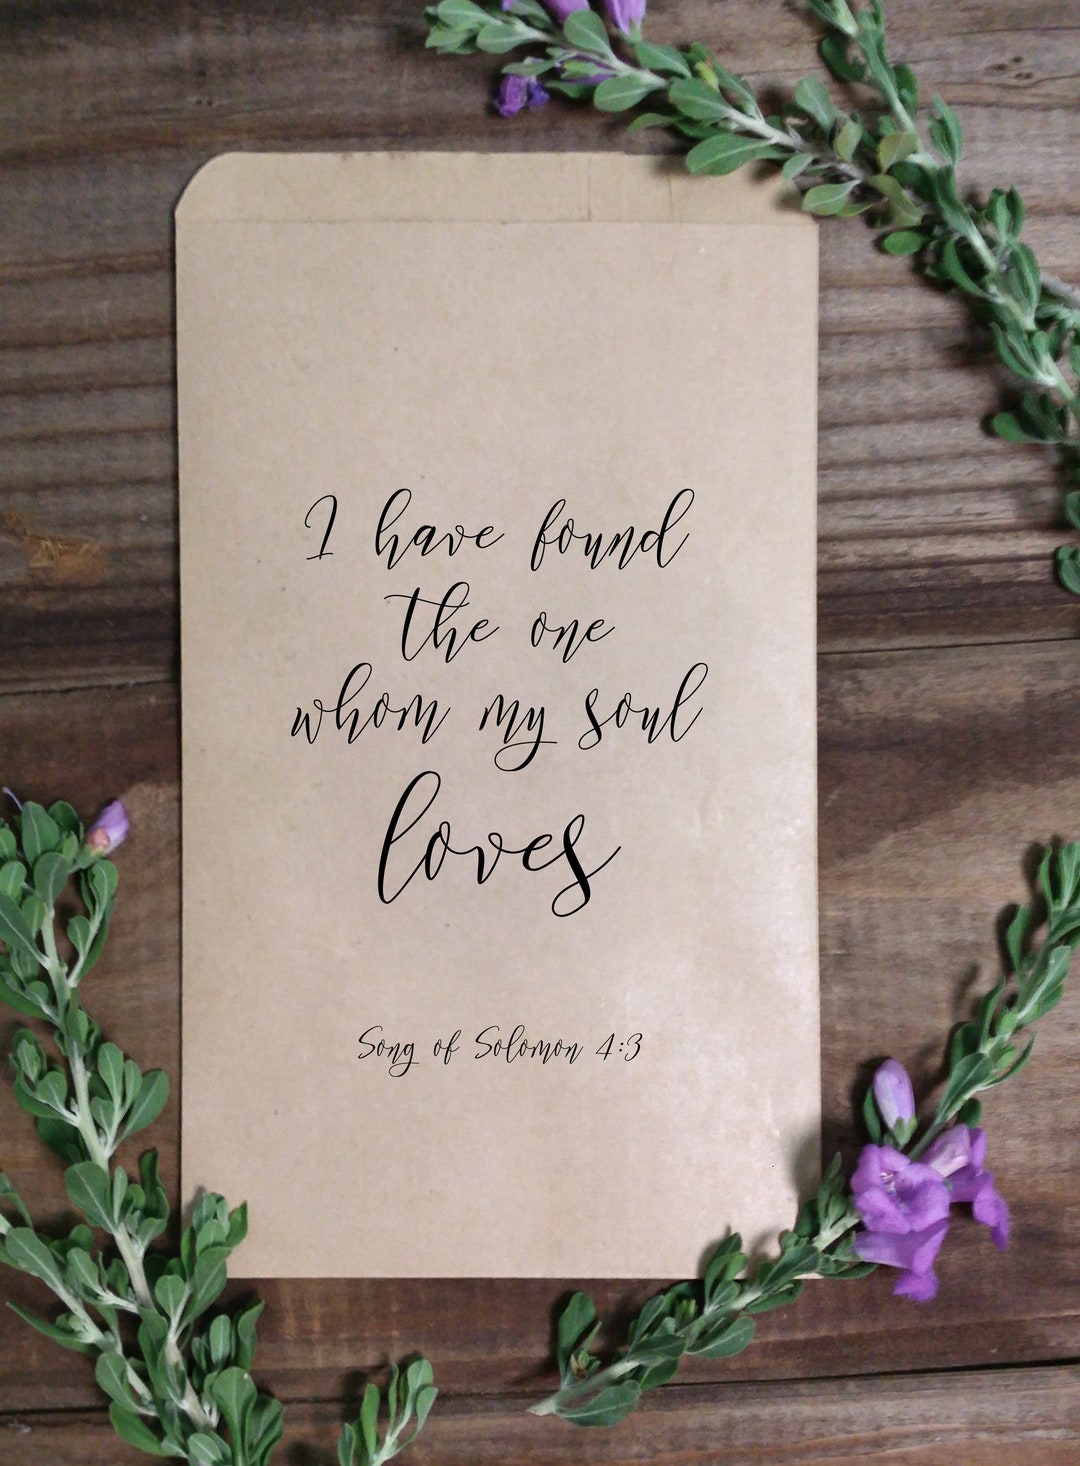 I have found
the one
whom my soul
loves
Song of Solomon 4:3